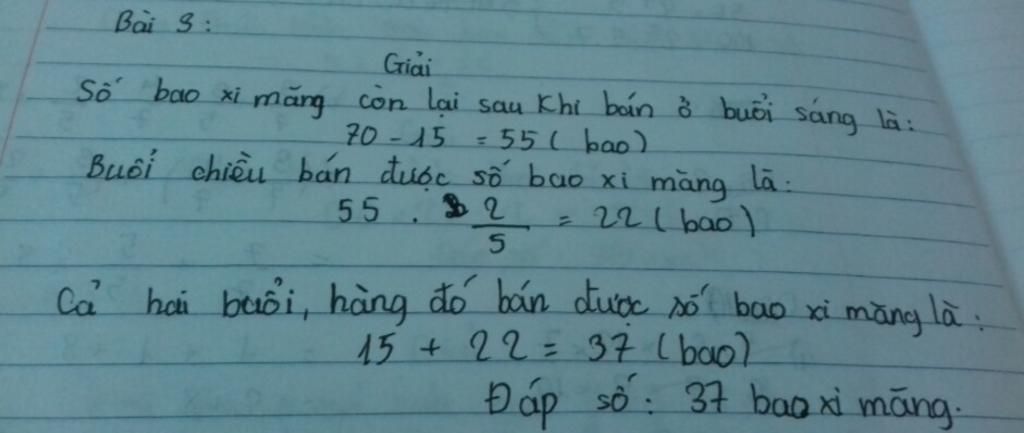 Bài 3:
Giải
Số bao xi măng còn lại sau khi bán ở buổi sáng là:
70 - 15 = 55 ( bao)
Buổi chiều bán được số bao xi măng là:
55 . 2/5 = 22 ( bao)
Cả hai buổi, hàng đó bán được số bao xi măng là:
15 + 22 = 37 (bao)
Đáp số: 37 bao xi măng.